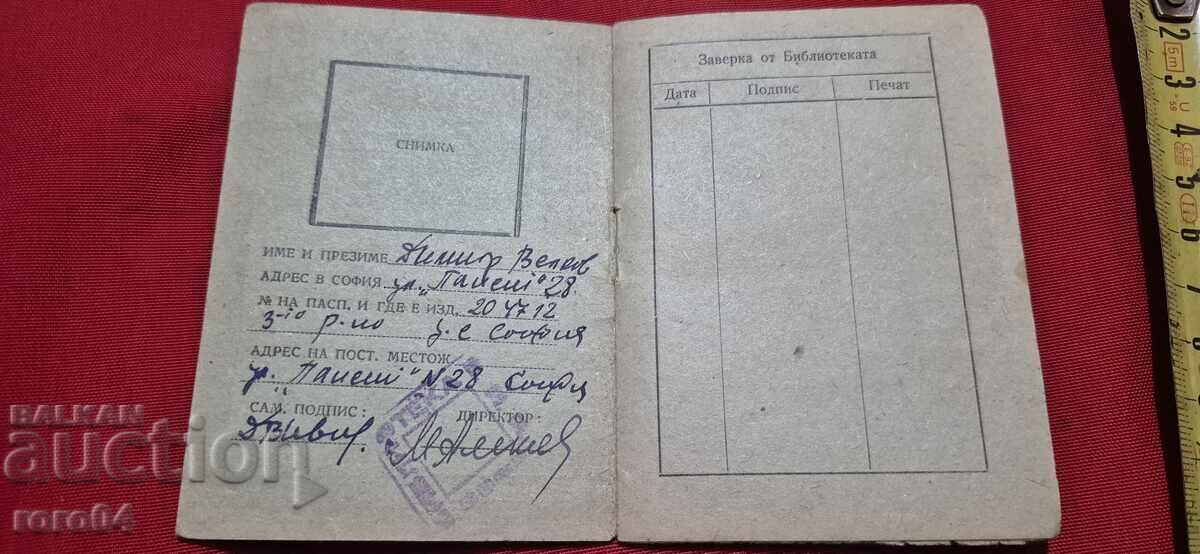 СНИМКА
ИМЕ И ПРЕЗИМЕ Димитр Велков
АДРЕС В СОФИЯ ул. "Паисий" 28.
№ НА ПАСП. И ГДЕ Е ИЗД. 204712
3-то р-но София
АДРЕС НА ПОСТ. МЕСТОЖ.
ул. "Паисий" N28 София
САМ. ПОДПИС: ДИРЕКТОР:
Заверка от Библиотеката
Дата Подпис Печат
BALKAN
auction
roro64
2
5m
3
4
5
7